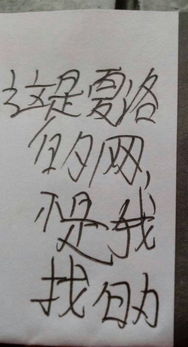 这是夏洛
的网,
不是我
找的